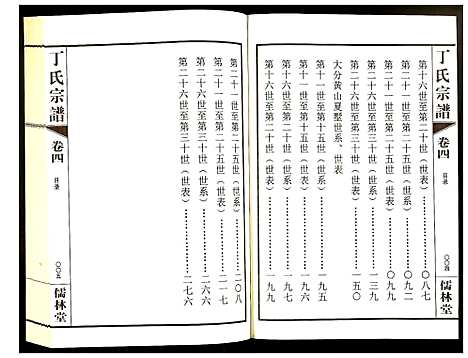 丁氏宗譜
卷四
目录
〇〇四
儒林堂
第十六世至第二十世（世表）……〇八七
第二十一世至第二十五世（世系）……〇九二
第二十一世至第二十五世（世表）……〇九九
第二十六世至第三十世（世系）……一三九
第二十六世至第三十世（世表）……一五〇
大分黄山夏墅世系、世表
第十一世至第十五世（世系）……一九五
第十一世至第十五世（世表）
第十六世至第二十世……一九九
第二十一世至第二十五世（世系）……二〇八
第二十一世至第二十五世（世表）……二一七
第二十六世至第三十世（世系）……二六六
第二十六世至第三十世（世表）……二七六
丁氏宗譜
卷四
目录
〇〇五
儒林堂